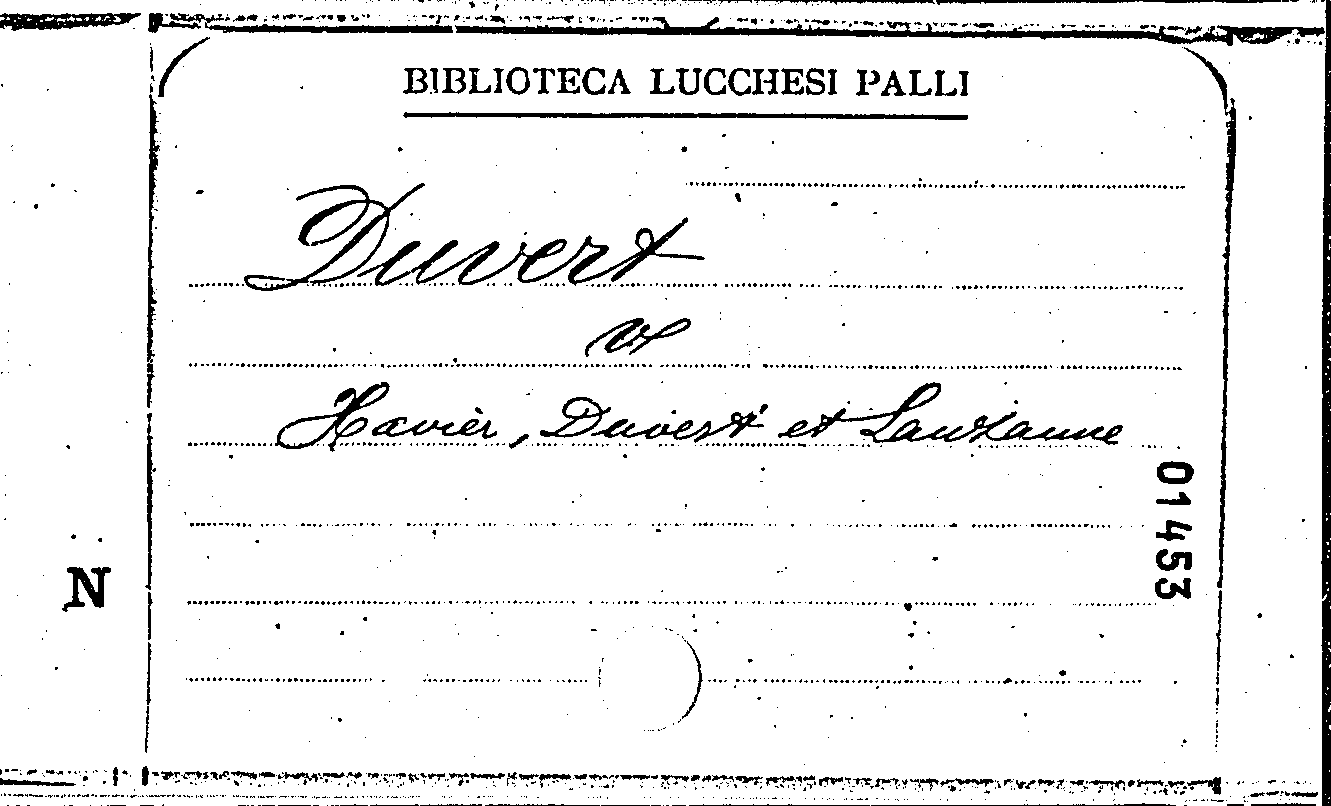 BIBLIOTECA LUCCHESI PALLI
Duvert
Xavièr, Duvert et Lauzanne
01453
N